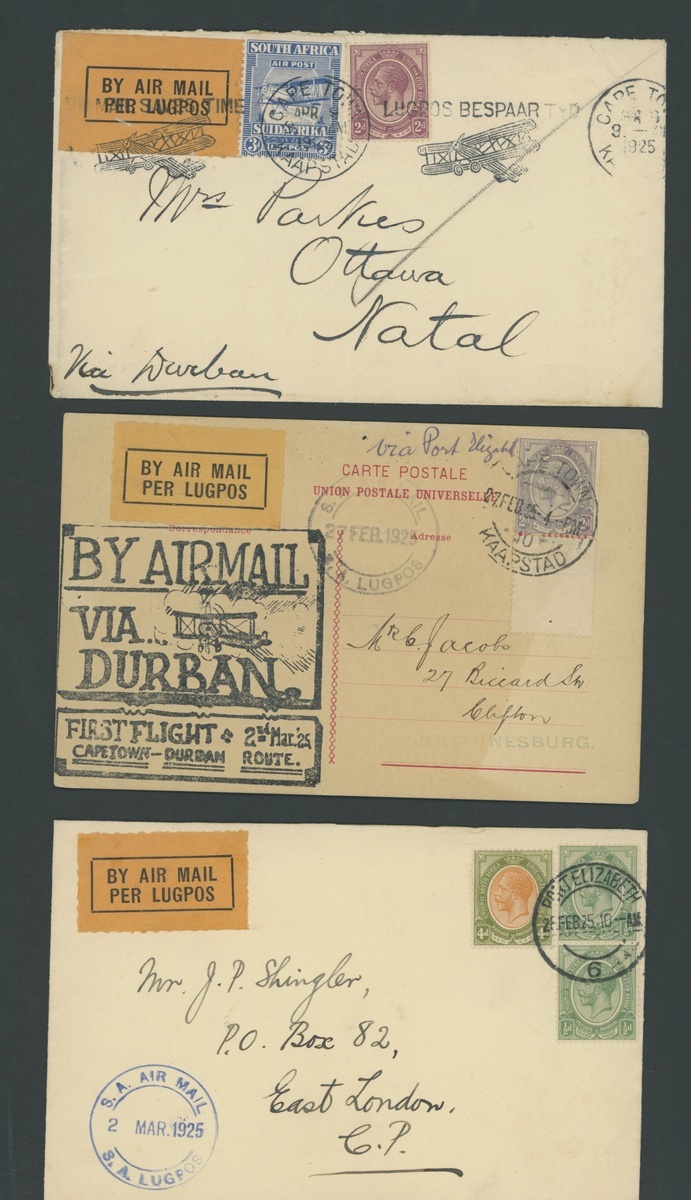 BY AIR MAIL
PER LUGPOS
SOUTH AFRICA
AIR POST
SUIDAFRIKA
3 3
CAPE TOWN
APR
KAAPSTAD
2d 2d
SAVES TIME
LUGPOS BESPAAR TYD
CAPE TO
1925
Mrs Parkes
Ottawa
Natal
Via Durban
BY AIR MAIL
PER LUGPOS
via Port Elizabeth
CARTE POSTALE
UNION POSTALE UNIVERSELLE
Correspondance
Adresse
27 FEB 1925
S.A. LUGPOS
CAPE TOWN
27 FEB 25 4 - PM
KAAPSTAD
BY AIRMAIL
VIA..
DURBAN.
FIRST FLIGHT
CAPETOWN - DURBAN
2nd Mar. '25
ROUTE.
Mr C. Jacobs
27 Biccard St
Clifton
JOHANNESBURG.
BY AIR MAIL
PER LUGPOS
4d 4d
PORT ELIZABETH
25 10 - AM
6
½d ½d
Mr. J. P. Shingler,
P.O. Box 82,
East London.
C.P.
S.A. AIR MAIL
2 MAR. 1925
S.A. LUGPOS